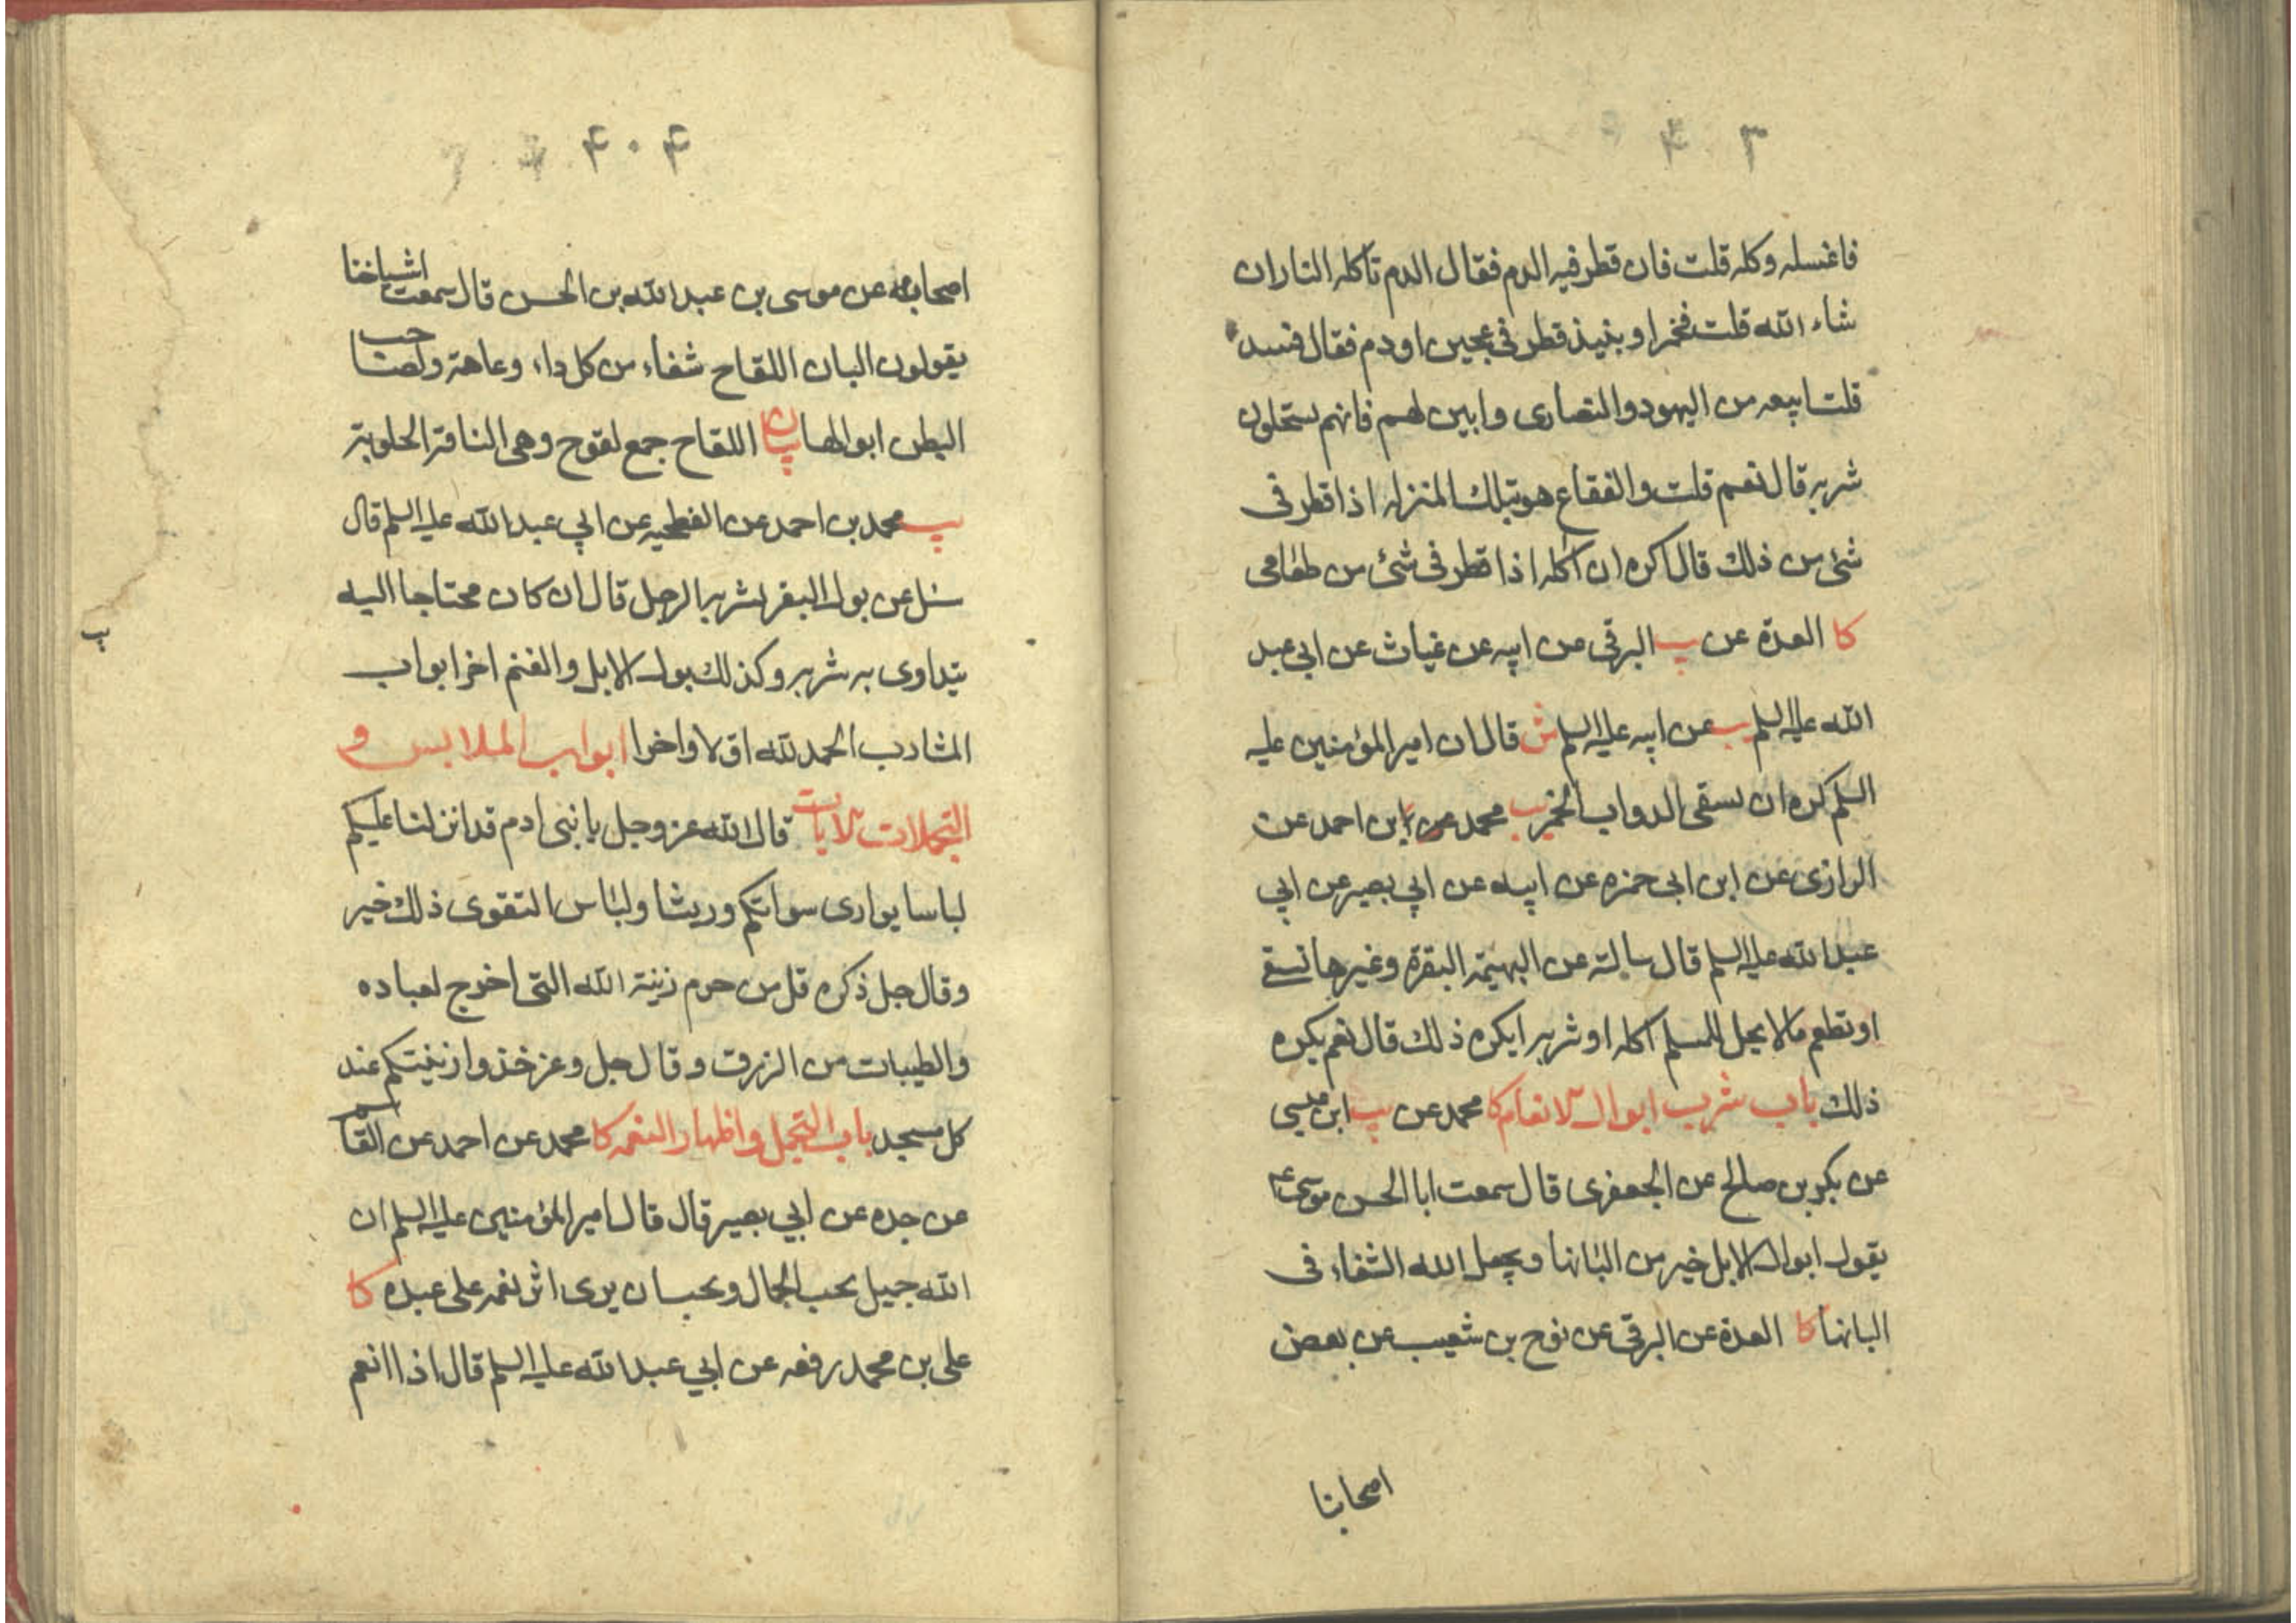 ۴۰۳
فاغسله وكله قلت فان قطر فيه الدم فقال الدم تأكله النار ان
شاء الله قلت فخمر او بنيذ قطر فى عجين او دم فقال فسد
قلت ابيعه من اليهود والنصارى وابين لهم فانهم يستحلون
شربه قال نعم قلت والفقاع هو بتلك المنزله اذا قطر فى
شئ من ذلك قال اكره ان آكله اذا قطر فى شئ من طعامى
كا العدة عن يب البرقى عن ابيه عن غياث عن ابى عبد
الله عليه السلم يب عن ابيه عليه السلم ش قال ان امير المؤمنين عليه
السلم كره ان يسقى الدواب الخمر يب محمد بن احمد عن
الرازى عن ابن ابى حمزه عن ابيه عن ابي بصير عن ابي
عبد الله عليه السلم قال سالته عن البهيمة البقرة وغيرها تسقى
او تطعم مالا يحل للمسلم اكله او شربه ايكره ذلك قال نعم يكره
ذلك باب شرب ابوال الانعام كا محمد عن يب ابن عيسى
عن بكر بن صالح عن الجعفرى قال سمعت ابا الحسن موسى ع
يقول ابوال الابل خير من البانها ويجعل الله الشفاء فى
البانها كا العدة عن البرقى عن نوح بن شعيب عن بعض
اصحابنا
۴۰۴
اصحابه عن موسى بن عبد الله بن الحسن قال سمعت اشياخنا
يقولون البان اللقاح شفاء من كل داء وعاهة ولصاحب
البطن ابوالها بيان اللقاح جمع لقوح وهى الناقة الحلوبة
يب محمد بن احمد عن الفطحيه عن ابي عبد الله عليه السلم قال
سئل عن بول البقر يشربه الرجل قال ان كان محتاجا اليه
يتداوى به شربه وكذلك بول الابل والغنم اخر ابواب
المشارب الحمد لله اولا واخرا ابواب الملابس و
التجملات الايات قال الله عز وجل يا بنى ادم قد انزلنا عليكم
لباسا يوارى سواتكم وريشا ولباس التقوى ذلك خير
وقال جل ذكره قل من حرم زينة الله التى اخرج لعباده
والطيبات من الرزق وقال جل وعز خذوا زينتكم عند
كل مسجد باب التجمل واظهار النعمه كا محمد عن احمد عن القاسم
عن جده عن ابي بصير قال قال امير المؤمنين عليه السلم ان
الله جميل يحب الجمال ويحب ان يرى اثر نعمه على عبده كا
على بن محمد رفعه عن ابي عبد الله عليه السلم قال اذا انعم